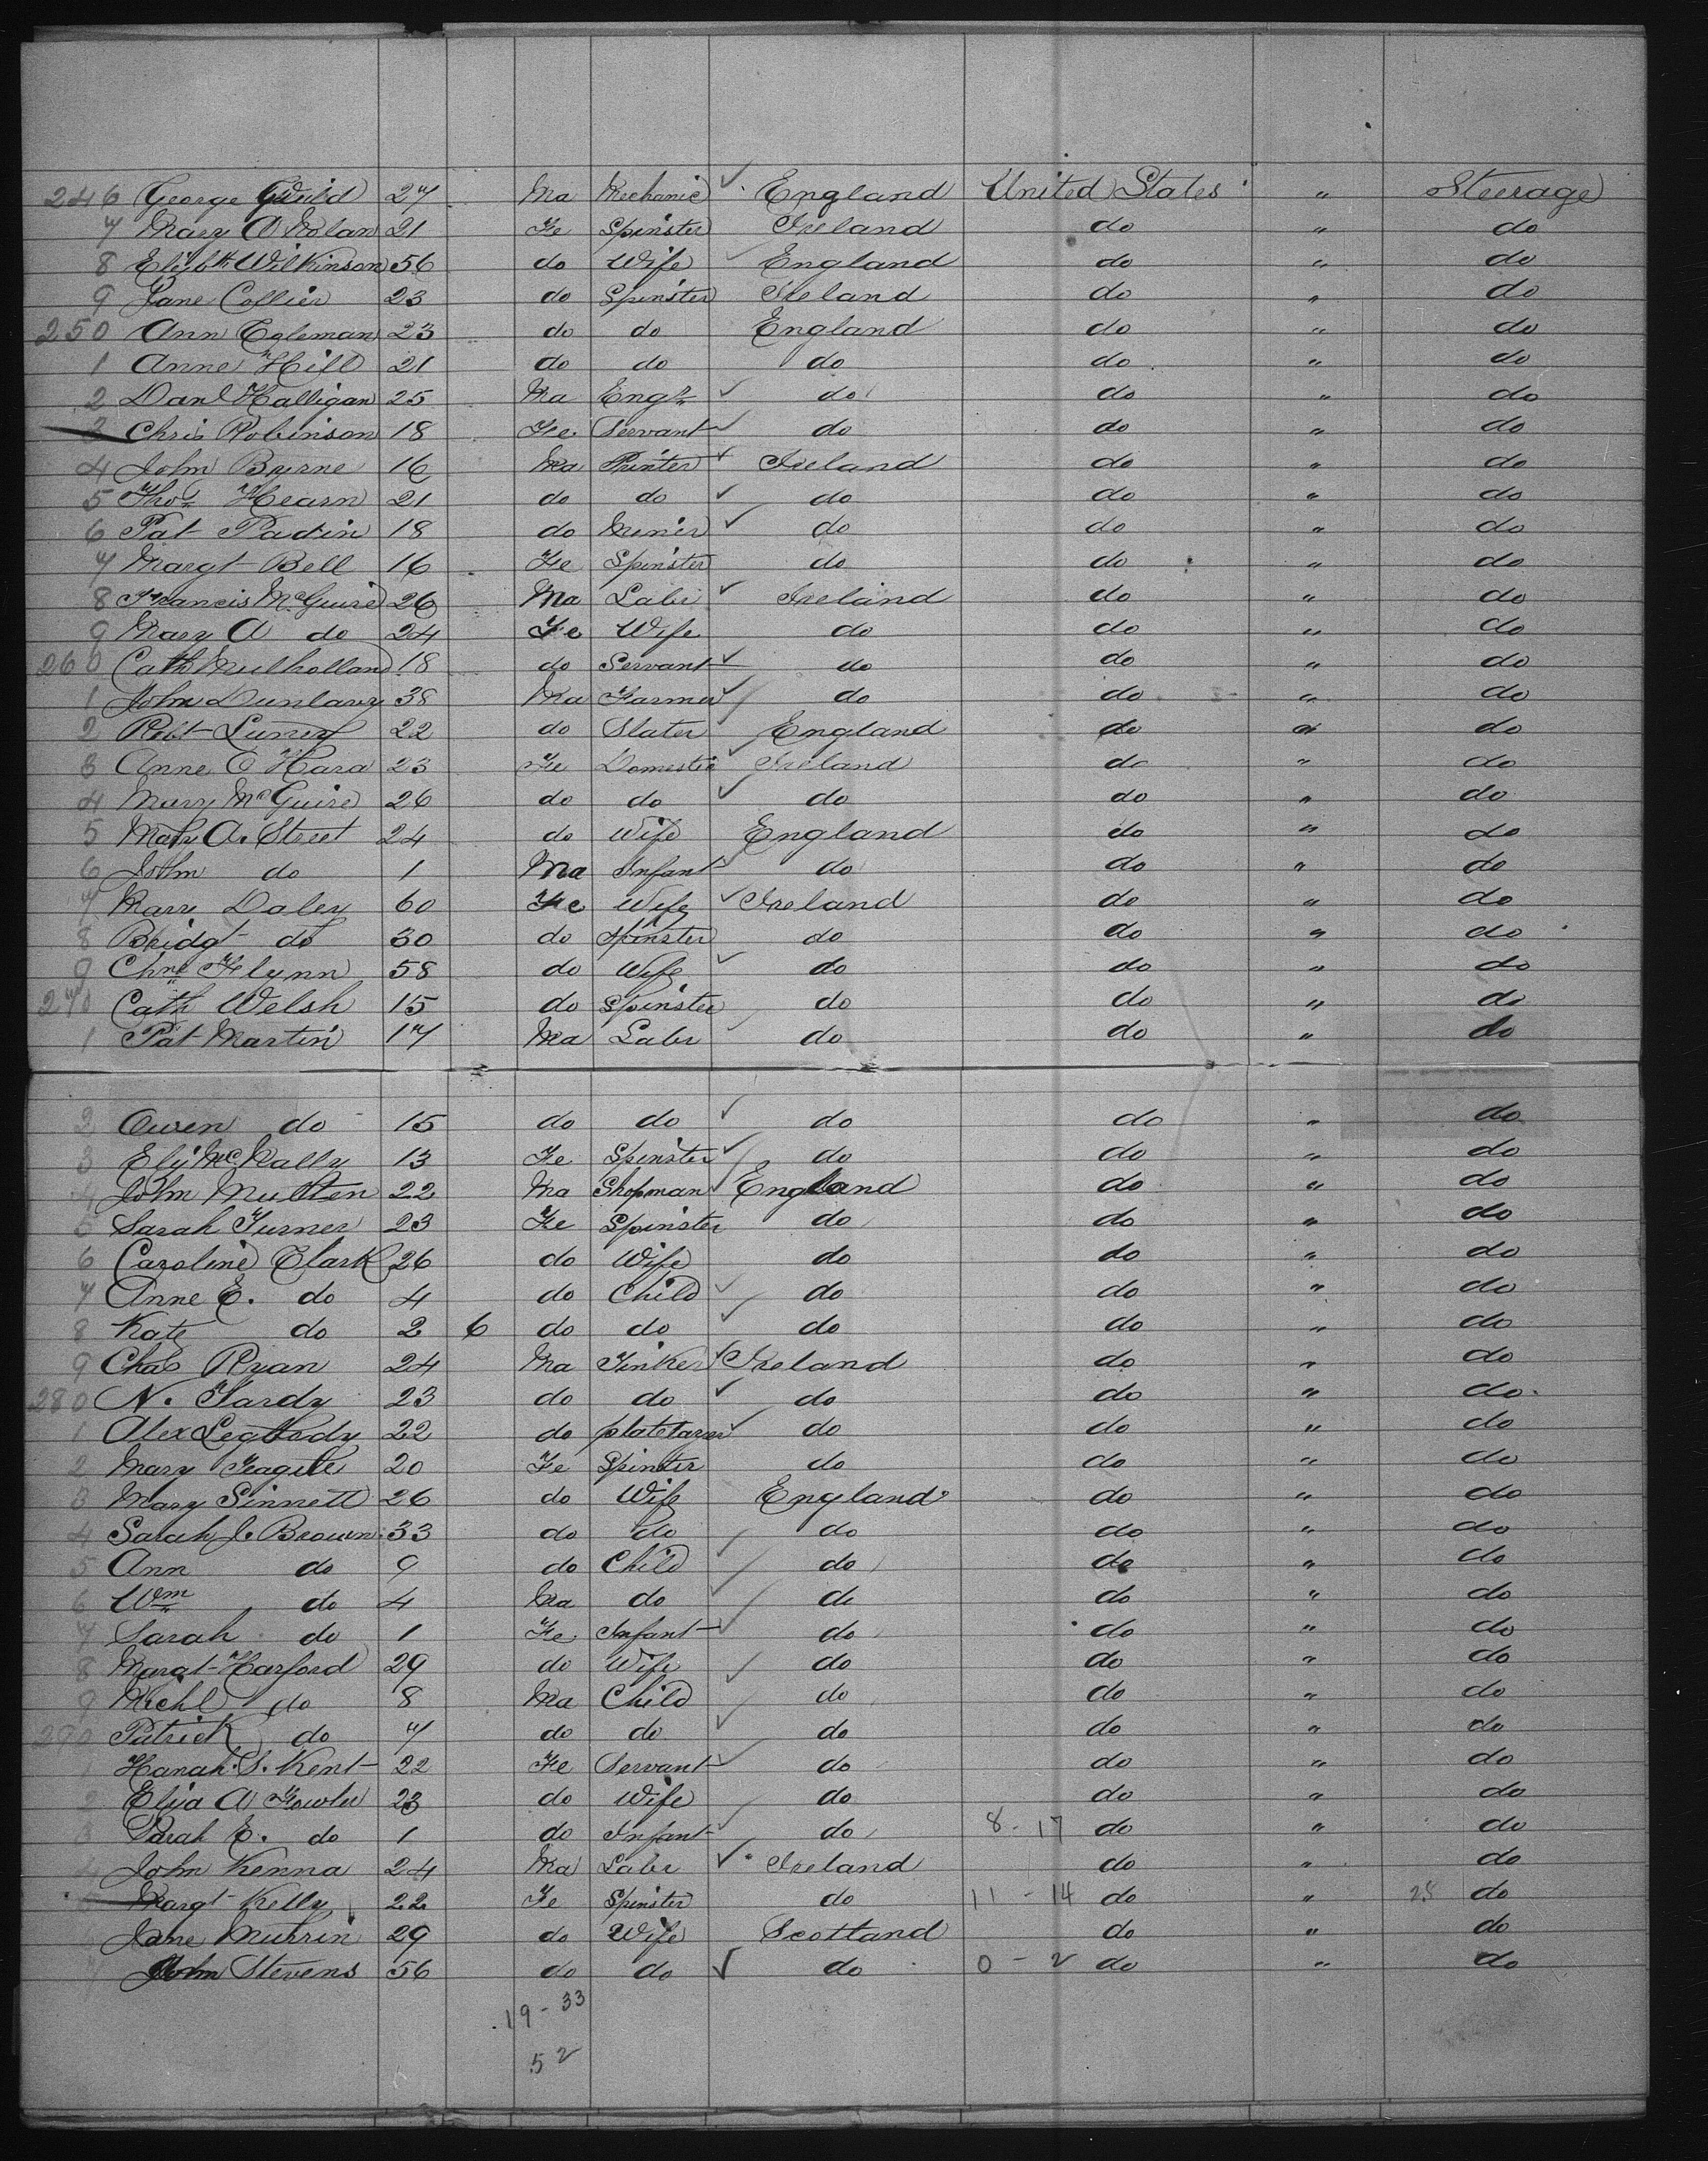 246 George Guild 27 Ma Mechanic England United States " Steerage
7 Mary A Nolan 21 Fe Spinster Ireland do " do
8 Elizbth Wilkinson 56 do Wife England do " do
9 Jane Collier 23 do Spinster Ireland do " do
250 Ann Coleman 23 do do England do " do
1 Anne Hill 21 do do do do " do
2 Danl Halligan 25 Ma Engr do do " do
3 Chris Robinson 18 Fe Servant do do " do
4 John Byrne 16 Ma Printer Ireland do " do
5 Thos Hearn 21 do do do do " do
6 Pat Padin 18 do Miner do do " do
7 Margt Bell 16 Fe Spinster do do " do
8 Francis McGuire 26 Ma Labr Ireland do " do
9 Mary A do 24 Fe Wife do do " do
260 Cath Mulholland 18 do Servant do do " do
1 John Dunlavy 38 Ma Farmer do do " do
2 Robt Luney 22 do Slater England do " do
3 Anne O'Hara 23 Fe Domestic Ireland do " do
4 Mary McGuire 26 do do do do " do
5 Mary A. Street 24 do Wife England do " do
6 John do 1 Ma Infant do do " do
7 Mary Daley 60 Fe Wife Ireland do " do
8 Bridgt do 30 do Spinster do do " do
9 Chne Flynn 58 do Wife do do " do
270 Cath Welsh 15 do Spinster do do " do
1 Pat Martin 17 Ma Labr do do " do
2 Owen do 15 do do do do " do
3 Eliz McNally 13 Fe Spinster do do " do
4 John Mullen 22 Ma Shopman England do " do
5 Sarah Turner 23 Fe Spinster do do " do
6 Caroline Clark 26 do Wife do do " do
7 Anne E. do 4 do Child do do " do
8 Kate do 2 6 do do do do " do
9 Chas Ryan 24 Ma Tinker Ireland do " do
280 N. Hardy 23 do do do do " do
1 Alex 22 do do do " do
2 Mary 20 Fe Spinster do do " do
3 Mary Sinnett 26 do Wife England do " do
4 Sarah J. Brown 33 do do do do " do
5 Ann do 9 do Child do do " do
6 Wm do 4 Ma do do do " do
7 Sarah do 1 Fe Infant do do " do
8 Margt Harford 29 do Wife do do " do
9 Michl do 8 Ma Child do do " do
290 Patrick do 7 do do do do " do
1 Hanah S. Kent 22 Fe Servant do do " do
2 Eliza A Fowler 23 do Wife do do " do
3 Sarah E. do 1 do Infant do 8 - 17 do " do
4 John Kenna 24 Ma Labr Ireland do " do
5 Margt Kelly 22 Fe Spinster do 11 - 14 do " 25 do
6 Jane Murrin 29 do Wife Scotland do " do
7 John Stevens 56 do do do 0 - 2 do " do
19 - 33
52